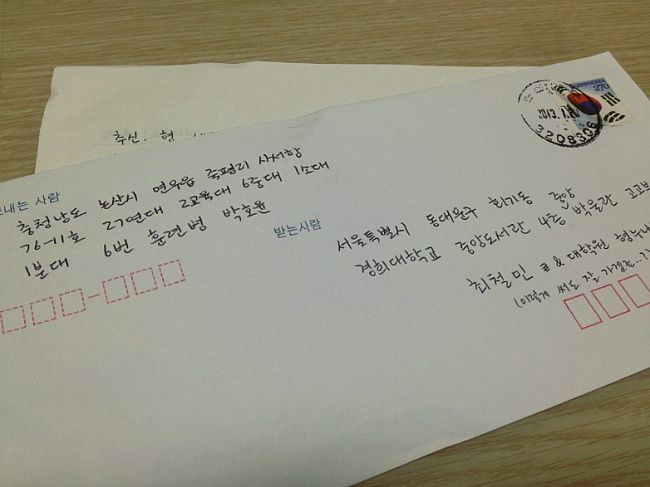 추신. 형
보내는 사람
충청남도 논산시 연무읍 죽평리 사서함
76-11호 27연대 2교육대 6중대 1소대
1분대 6번 훈련병 박호윤
KOREA
270
2013.
3208306
받는사람
서울특별시 동대문구 회기동 중앙
경희대학교 중앙도서관 4층 박물관
최철민 & 대학원 형누나
(이렇게 써도 잘 가겠죠..?)